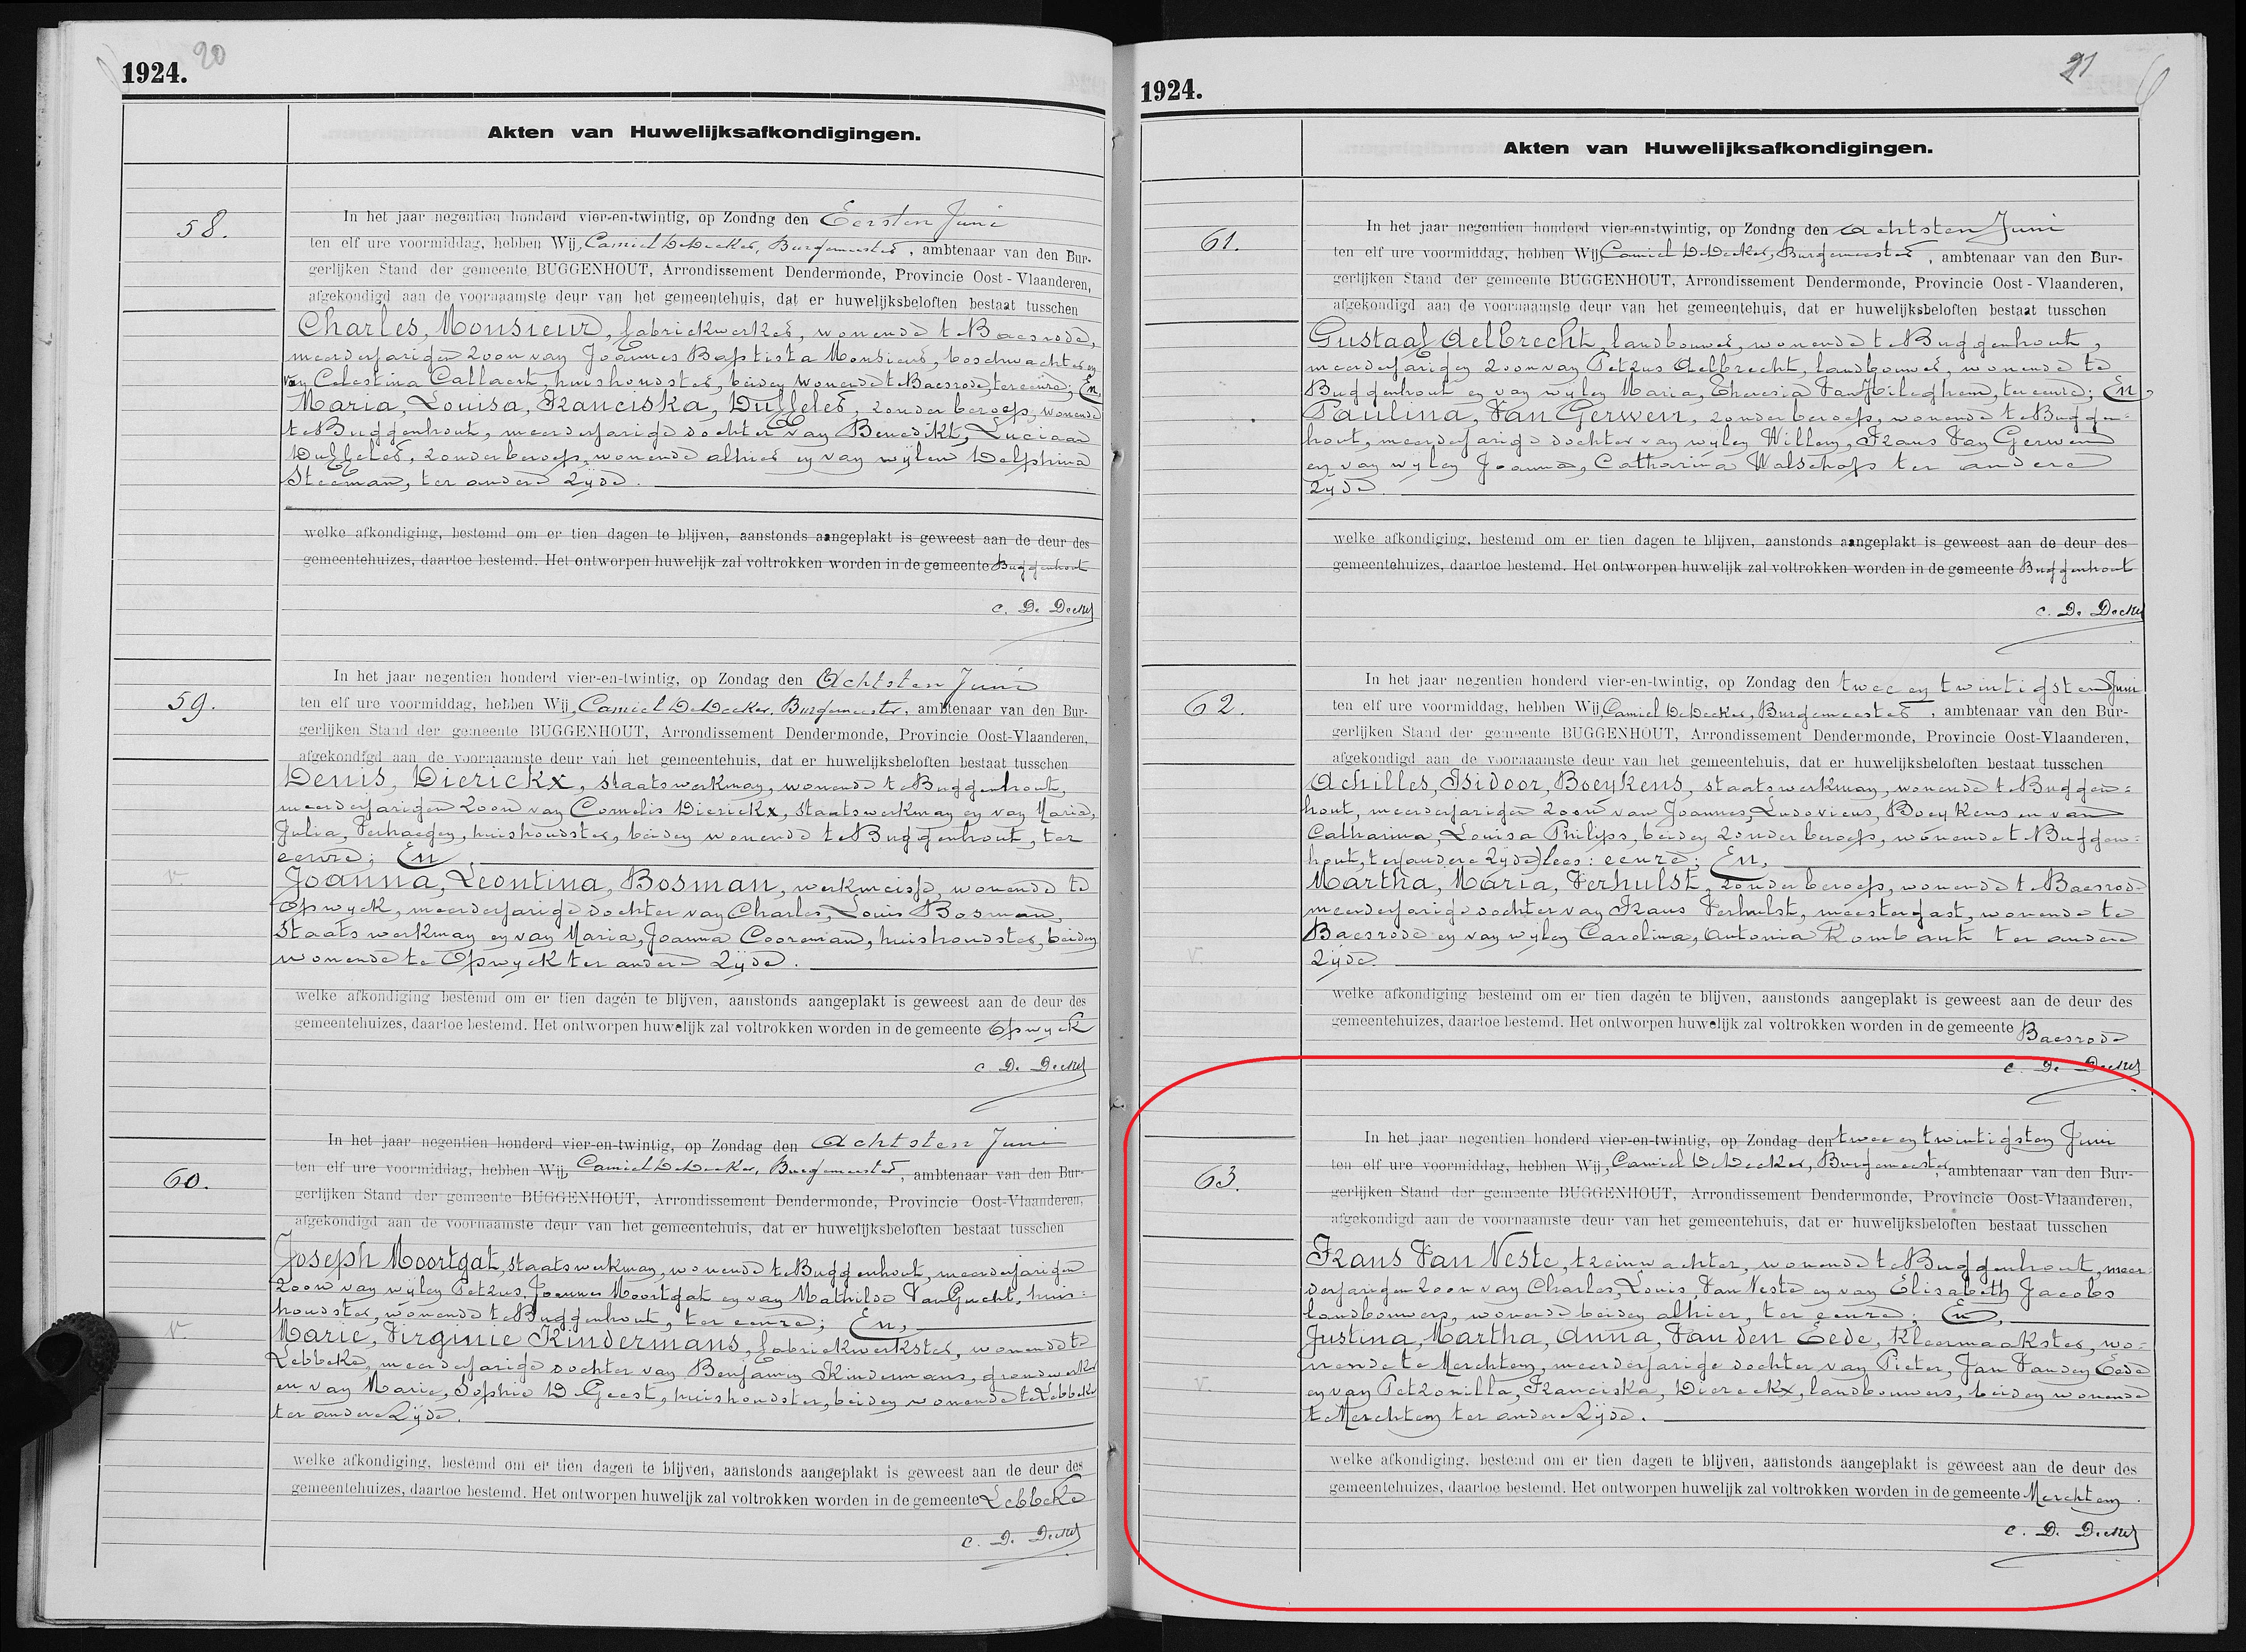 1924. 20
Akten van Huwelijksafkondigingen.
58.
In het jaar negentien honderd vier-en-twintig, op Zondng den Eersten Juni
ten elf ure voormiddag, hebben Wij, Camiel De Decker, Burgemeester, ambtenaar van den Bur-
gerlijken Stand der gemeente BUGGENHOUT, Arrondissement Dendermonde, Provincie Oost-Vlaanderen,
afgekondigd aan de voornaamste deur van het gemeentehuis, dat er huwelijksbeloften bestaat tusschen
Charles, Monsieur, fabriekwerker, wonende te Baesrode,
meerderjarigen zoon van Joannes Baptista Monsieur, boschwachter en
van Celestina Callaert, huishoudster, beiden wonende te Baesrode, ter eenre; En
Maria, Louisa, Franciska, Duffeler, zonder beroep, wonende
te Buggenhout, meerderjarige dochter van Benedikt, Luciaan
Duffeler, zonder beroep, wonende alhier en van wijlen Delphina
Steeman, ter andere zijde.
welke afkondiging, bestemd om er tien dagen te blijven, aanstonds aangeplakt is geweest aan de deur des
gemeentehuizes, daartoe bestemd. Het ontworpen huwelijk zal voltrokken worden in de gemeente Buggenhout
C. De Decker
59.
In het jaar negentien honderd vier-en-twintig, op Zondag den Achtsten Juni
ten elf ure voormiddag, hebben Wij, Camiel De Decker, Burgemeester, ambtenaar van den Bur-
gerlijken Stand der gemeente BUGGENHOUT, Arrondissement Dendermonde, Provincie Oost-Vlaanderen,
afgekondigd aan de voornaamste deur van het gemeentehuis, dat er huwelijksbeloften bestaat tusschen
Denis, Dierickx, staatswerkman, wonende te Buggenhout,
meerderjarigen zoon van Cornelis Dierickx, staatswerkman en van Maria,
Julia, Verhaegen, huishoudster, beiden wonende te Buggenhout, ter
eenre; En,
v.
Joanna, Leontina, Bosman, werkmeisje, wonende te
Opwyck, meerderjarige dochter van Charles, Louis Bosman,
staatswerkman en van Maria, Joanna Cooreman, huishoudster, beiden
wonende te Opwyck ter andere zijde.
welke afkondiging bestemd om er tien dagen te blijven, aanstonds aangeplakt is geweest aan de deur des
gemeentehuizes, daartoe bestemd. Het ontworpen huwelijk zal voltrokken worden in de gemeente Opwyck
C. De Decker
60.
In het jaar negentien honderd vier-en-twintig, op Zondag den Achtsten Juni
ten elf ure voormiddag, hebben Wij, Camiel De Decker, Burgemeester, ambtenaar van den Bur-
gerlijken Stand der gemeente BUGGENHOUT, Arrondissement Dendermonde, Provincie Oost-Vlaanderen,
afgekondigd aan de voornaamste deur van het gemeentehuis, dat er huwelijksbeloften bestaat tusschen
Joseph Moortgat, staatswerkman, wonende te Buggenhout, meerderjarigen
zoon van wijlen Petrus, Joannes Moortgat en van Mathilde Van Gucht, huis=
houdster, wonende te Buggenhout, ter eenre; En,
v.
Marie, Virginie Kindermans, fabriekwerkster, wonende te
Lebbeke, meerderjarige dochter van Benjamin Kindermans, grondwerker
en van Marie, Sophie De Geest, huishoudster, beiden wonende te Lebbeke
ter andere zijde.
welke afkondiging, bestemd om er tien dagen te blijven, aanstonds aangeplakt is geweest aan de deur des
gemeentehuizes, daartoe bestemd. Het ontworpen huwelijk zal voltrokken worden in de gemeente Lebbeke
C. De Decker
1924. 21
Akten van Huwelijksafkondigingen.
61.
In het jaar negentien honderd vier-en-twintig, op Zondng den Achtsten Juni
ten elf ure voormiddag, hebben Wij, Camiel De Decker, Burgemeester, ambtenaar van den Bur-
gerlijken Stand der gemeente BUGGENHOUT, Arrondissement Dendermonde, Provincie Oost-Vlaanderen,
afgekondigd aan de voornaamste deur van het gemeentehuis, dat er huwelijksbeloften bestaat tusschen
Gustaaf Aelbrecht, landbouwer, wonende te Buggenhout,
meerderjarigen zoon van Petrus Aelbrecht, landbouwer, wonende te
Buggenhout en van wijlen Maria, Theresia Van Hileghem, ter eenre; En,
Paulina, Van Gerwen, zonder beroep, wonende te Buggen=
hout, meerderjarige dochter van wijlen Willem, Frans Van Gerwen
en van wijlen Joanna, Catharina Walschap ter andere
zijde.
welke afkondiging, bestemd om er tien dagen te blijven, aanstonds aangeplakt is geweest aan de deur des
gemeentehuizes, daartoe bestemd. Het ontworpen huwelijk zal voltrokken worden in de gemeente Buggenhout
C. De Decker
62.
In het jaar negentien honderd vier-en-twintig, op Zondag den twee en twintigsten Juni
ten elf ure voormiddag, hebben Wij, Camiel De Decker, Burgemeester, ambtenaar van den Bur-
gerlijken Stand der gemeente BUGGENHOUT, Arrondissement Dendermonde, Provincie Oost-Vlaanderen,
afgekondigd aan de voornaamste deur van het gemeentehuis, dat er huwelijksbeloften bestaat tusschen
Achilles, Isidoor, Boeykens, staatswerkman, wonende te Buggen=
hout, meerderjarigen zoon van Joannes, Ludovicus, Boeykens en van
Catharina, Louisa Philips, beiden zonder beroep, wonende te Buggen=
hout, ter (andere zijde) lees: eenre; En,
Martha, Maria, Verhulst, zonder beroep, wonende te Baesrode
meerderjarige dochter van Frans Verhulst, meestergast, wonende te
Baesrode en van wijlen Carolina, Antonia Rombaut ter andere
v.
zijde.
welke afkondiging bestemd om er tien dagen te blijven, aanstonds aangeplakt is geweest aan de deur des
gemeentehuizes, daartoe bestemd. Het ontworpen huwelijk zal voltrokken worden in de gemeente Baesrode
C. De Decker
63.
In het jaar negentien honderd vier-en-twintig, op Zondag den twee en twintigsten Juni
ten elf ure voormiddag, hebben Wij, Camiel De Decker, Burgemeester, ambtenaar van den Bur-
gerlijken Stand der gemeente BUGGENHOUT, Arrondissement Dendermonde, Provincie Oost-Vlaanderen,
afgekondigd aan de voornaamste deur van het gemeentehuis, dat er huwelijksbeloften bestaat tusschen
Frans Van Neste, treinwachter, wonende te Buggenhout, meer=
derjarigen zoon van Charles, Louis, Van Neste en van Elisabeth Jacobs
landbouwers, wonende beiden alhier, ter eenre; En,
Justina, Martha, Anna, Van den Eede, kleermaakster, wo=
nende te Merchtem, meerderjarige dochter van Pieter, Jan Van den Eede
v.
en van Petronilla, Franciska, Diereckx, landbouwers, beiden wonende
te Merchtem ter andere zijde.
welke afkondiging, bestemd om er tien dagen te blijven, aanstonds aangeplakt is geweest aan de deur des
gemeentehuizes, daartoe bestemd. Het ontworpen huwelijk zal voltrokken worden in de gemeente Merchtem.
C. De Decker